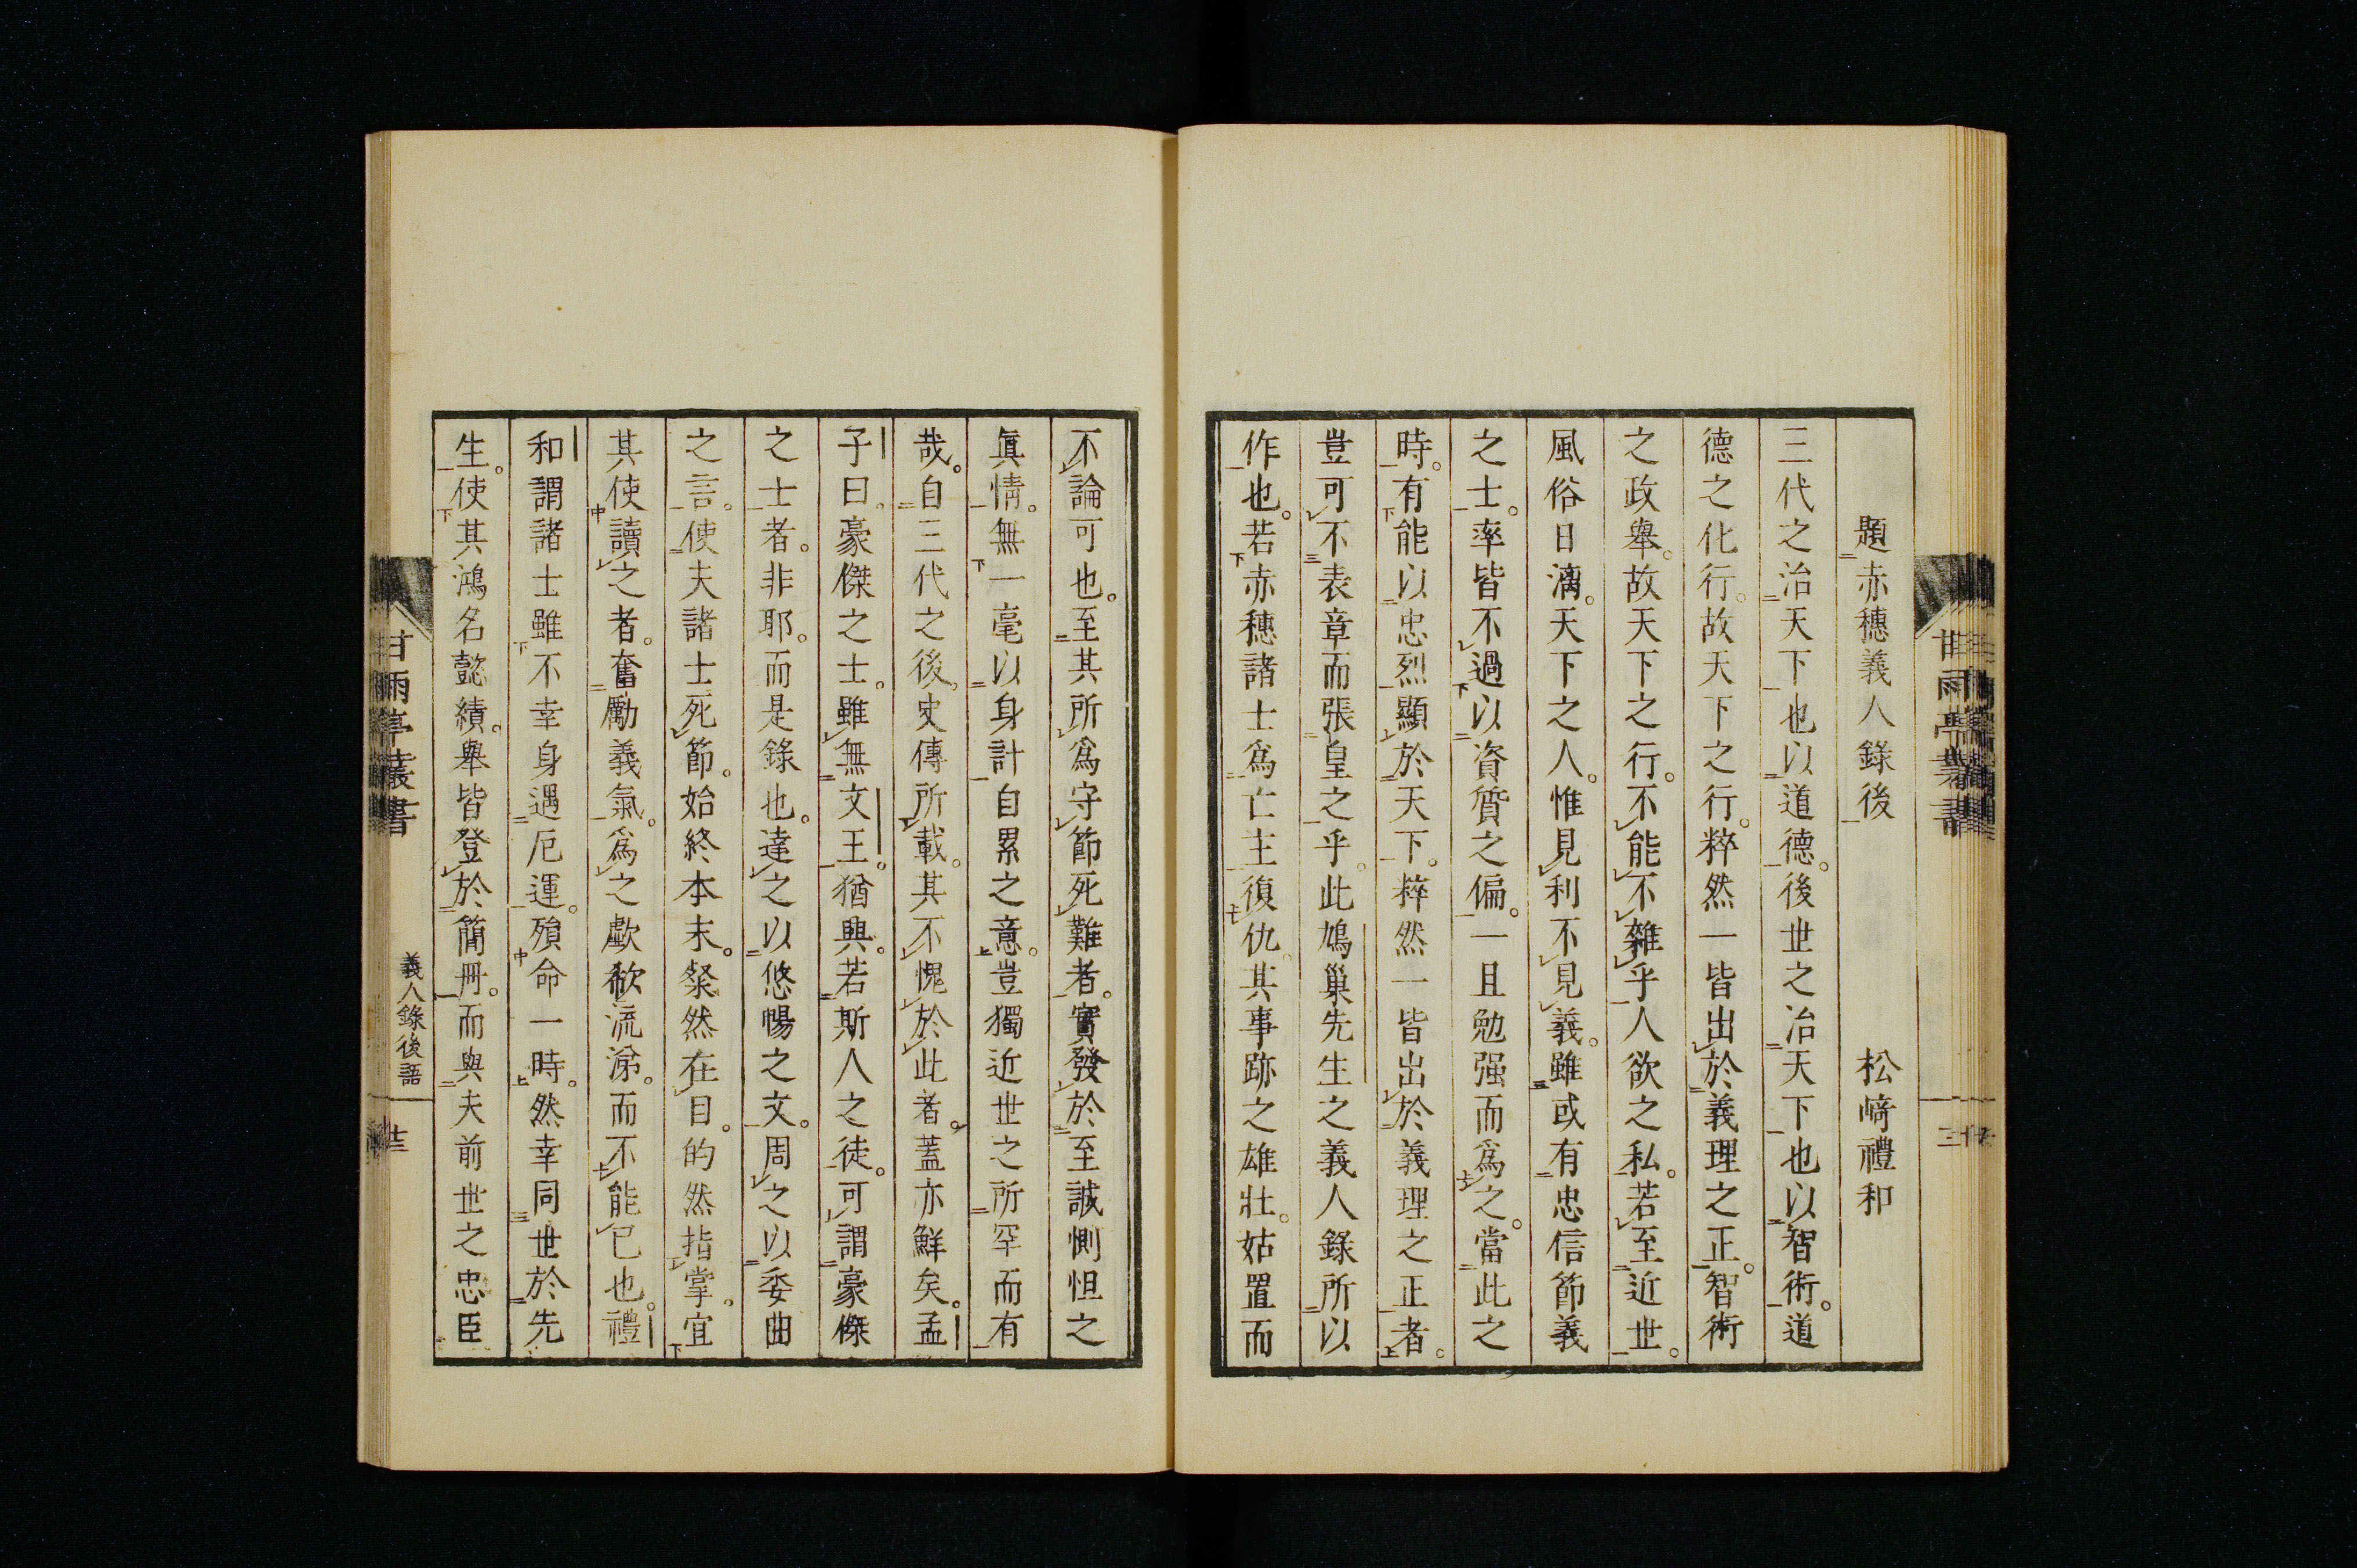 題赤穗義人錄後 松﨑禮和
三代之治天下也以道德。後世之治天下也以智術。道
德之化行。故天下之行。粹然一皆出於義理之正。智術
之政舉。故天下之行。不能不雜乎人欲之私。若至近世。
風俗日漓。天下之人。惟見利不見義。雖或有忠信節義
之士。率皆不過以資質之偏。一旦勉强而爲之。當此之
時。有能以忠烈顯於天下。粹然一皆出於義理之正者。
豈可不表章而張皇之乎。此鳩巢先生之義人錄所以
作也。若赤穗諸士爲亡主復仇。其事跡之雄壯。姑置而
不論可也。至其所爲守節死難者。實發於至誠惻怛之
眞情。無一毫以身計自累之意。豈獨近世之所罕而有
哉。自三代之後。史傳所載。其不愧於此者。蓋亦鮮矣。孟
子曰。豪傑之士。雖無文王。猶興。若斯人之徒。可謂豪傑
之士者。非耶。而是錄也。達之以悠暢之文。周之以委曲
之言。使夫諸士死節。始終本末。粲然在目。的然指掌。宜
其使讀之者。奮勵義氣。爲之歔欷流涕。而不能已也。禮
和謂諸士雖不幸身遇厄運。殞命一時。然幸同世於先
生。使其鴻名懿績。舉皆登於簡冊。而與夫前世之忠臣
甘雨亭叢書 義人錄後語